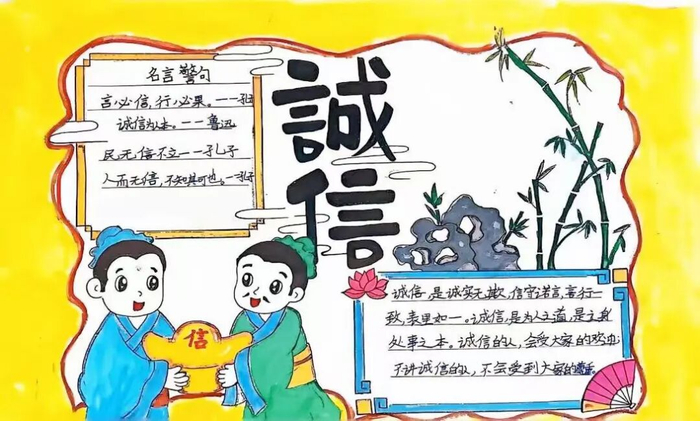 名言警句
言必信,行必果。——孔子
诚信为本。——鲁迅
民无信不立——孔子
人而无信,不知其可也。——孔子
誠信
信
诚信,是诚实无欺,信守诺言,言行一
致,表里如一。诚信,是为人之道,是立身
处事之本。诚信的人,会受大家的欢迎;
不讲诚信的人,不会受到大家的